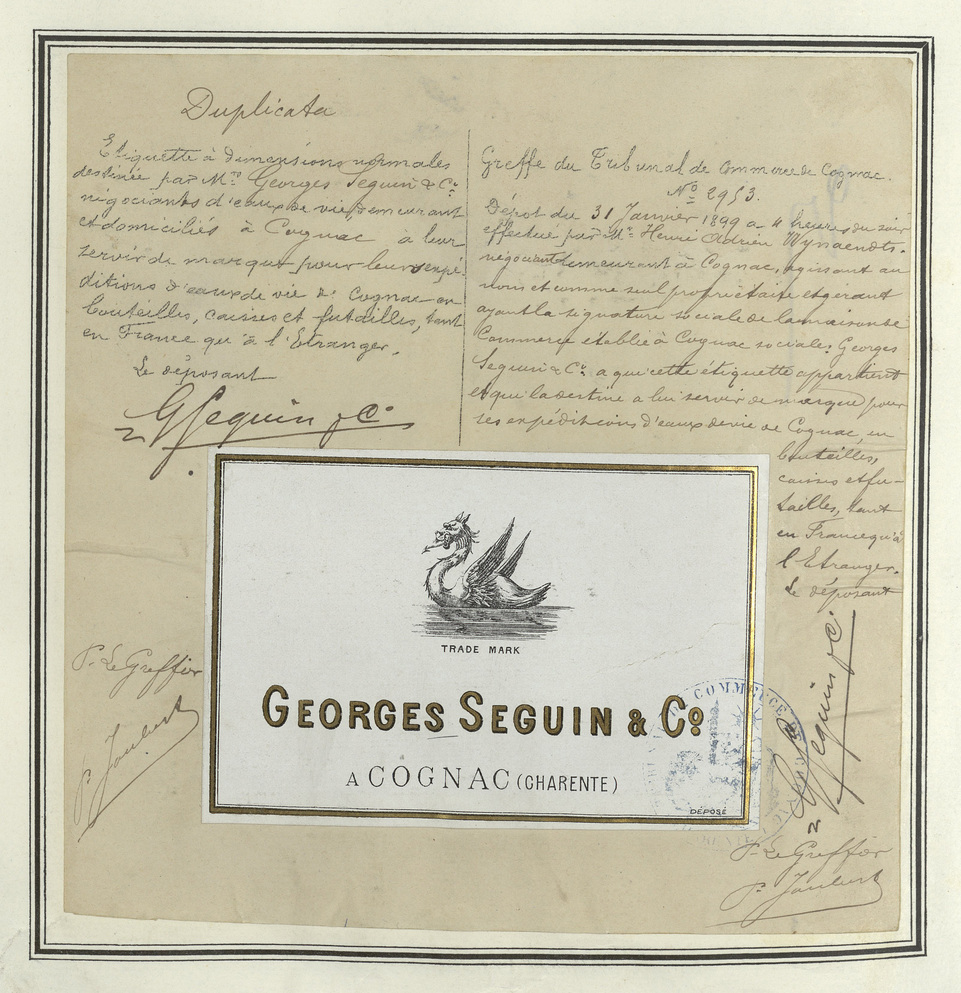 Duplicata
Etiquette à dimensions normales
destinée par Mrs Georges Seguin & Co
négociants d'eaux de vie demeurant
et domiciliés à Cognac à leur
servir de marque pour leurs expé-
ditions d'eaux de vie de Cognac en
bouteilles, caisses et futailles, tant
en France qu'à l'Etranger.
Le déposant
G Seguin & Co
Greffe du Tribunal de Commerce de Cognac.
No 2953.
Dépot du 31 Janvier 1899 a 4 heures du soir
effectué par Mr Henri Adrien Wynaendts.
négociant demeurant à Cognac, agissant au
nom et comme seul propriétaire et gérant
ayant la signature sociale de la maison de
Commerce établie à Cognac sociale: Georges
Seguin & Co. a qui cette étiquette appartient
et qui la destine a lui servir de marque pour
ses expéditions d'eaux de vie de Cognac, en
bouteilles,
caisses et fu-
tailles, tant
en France qu'à
l'Etranger.
Le déposant
G Seguin & Co
TRADE MARK
GEORGES SEGUIN & Co
A COGNAC (CHARENTE)
DÉPOSÉ
COMMERCE
P. Le Greffier
P. Joubert
P. Le Greffier
P. Joubert